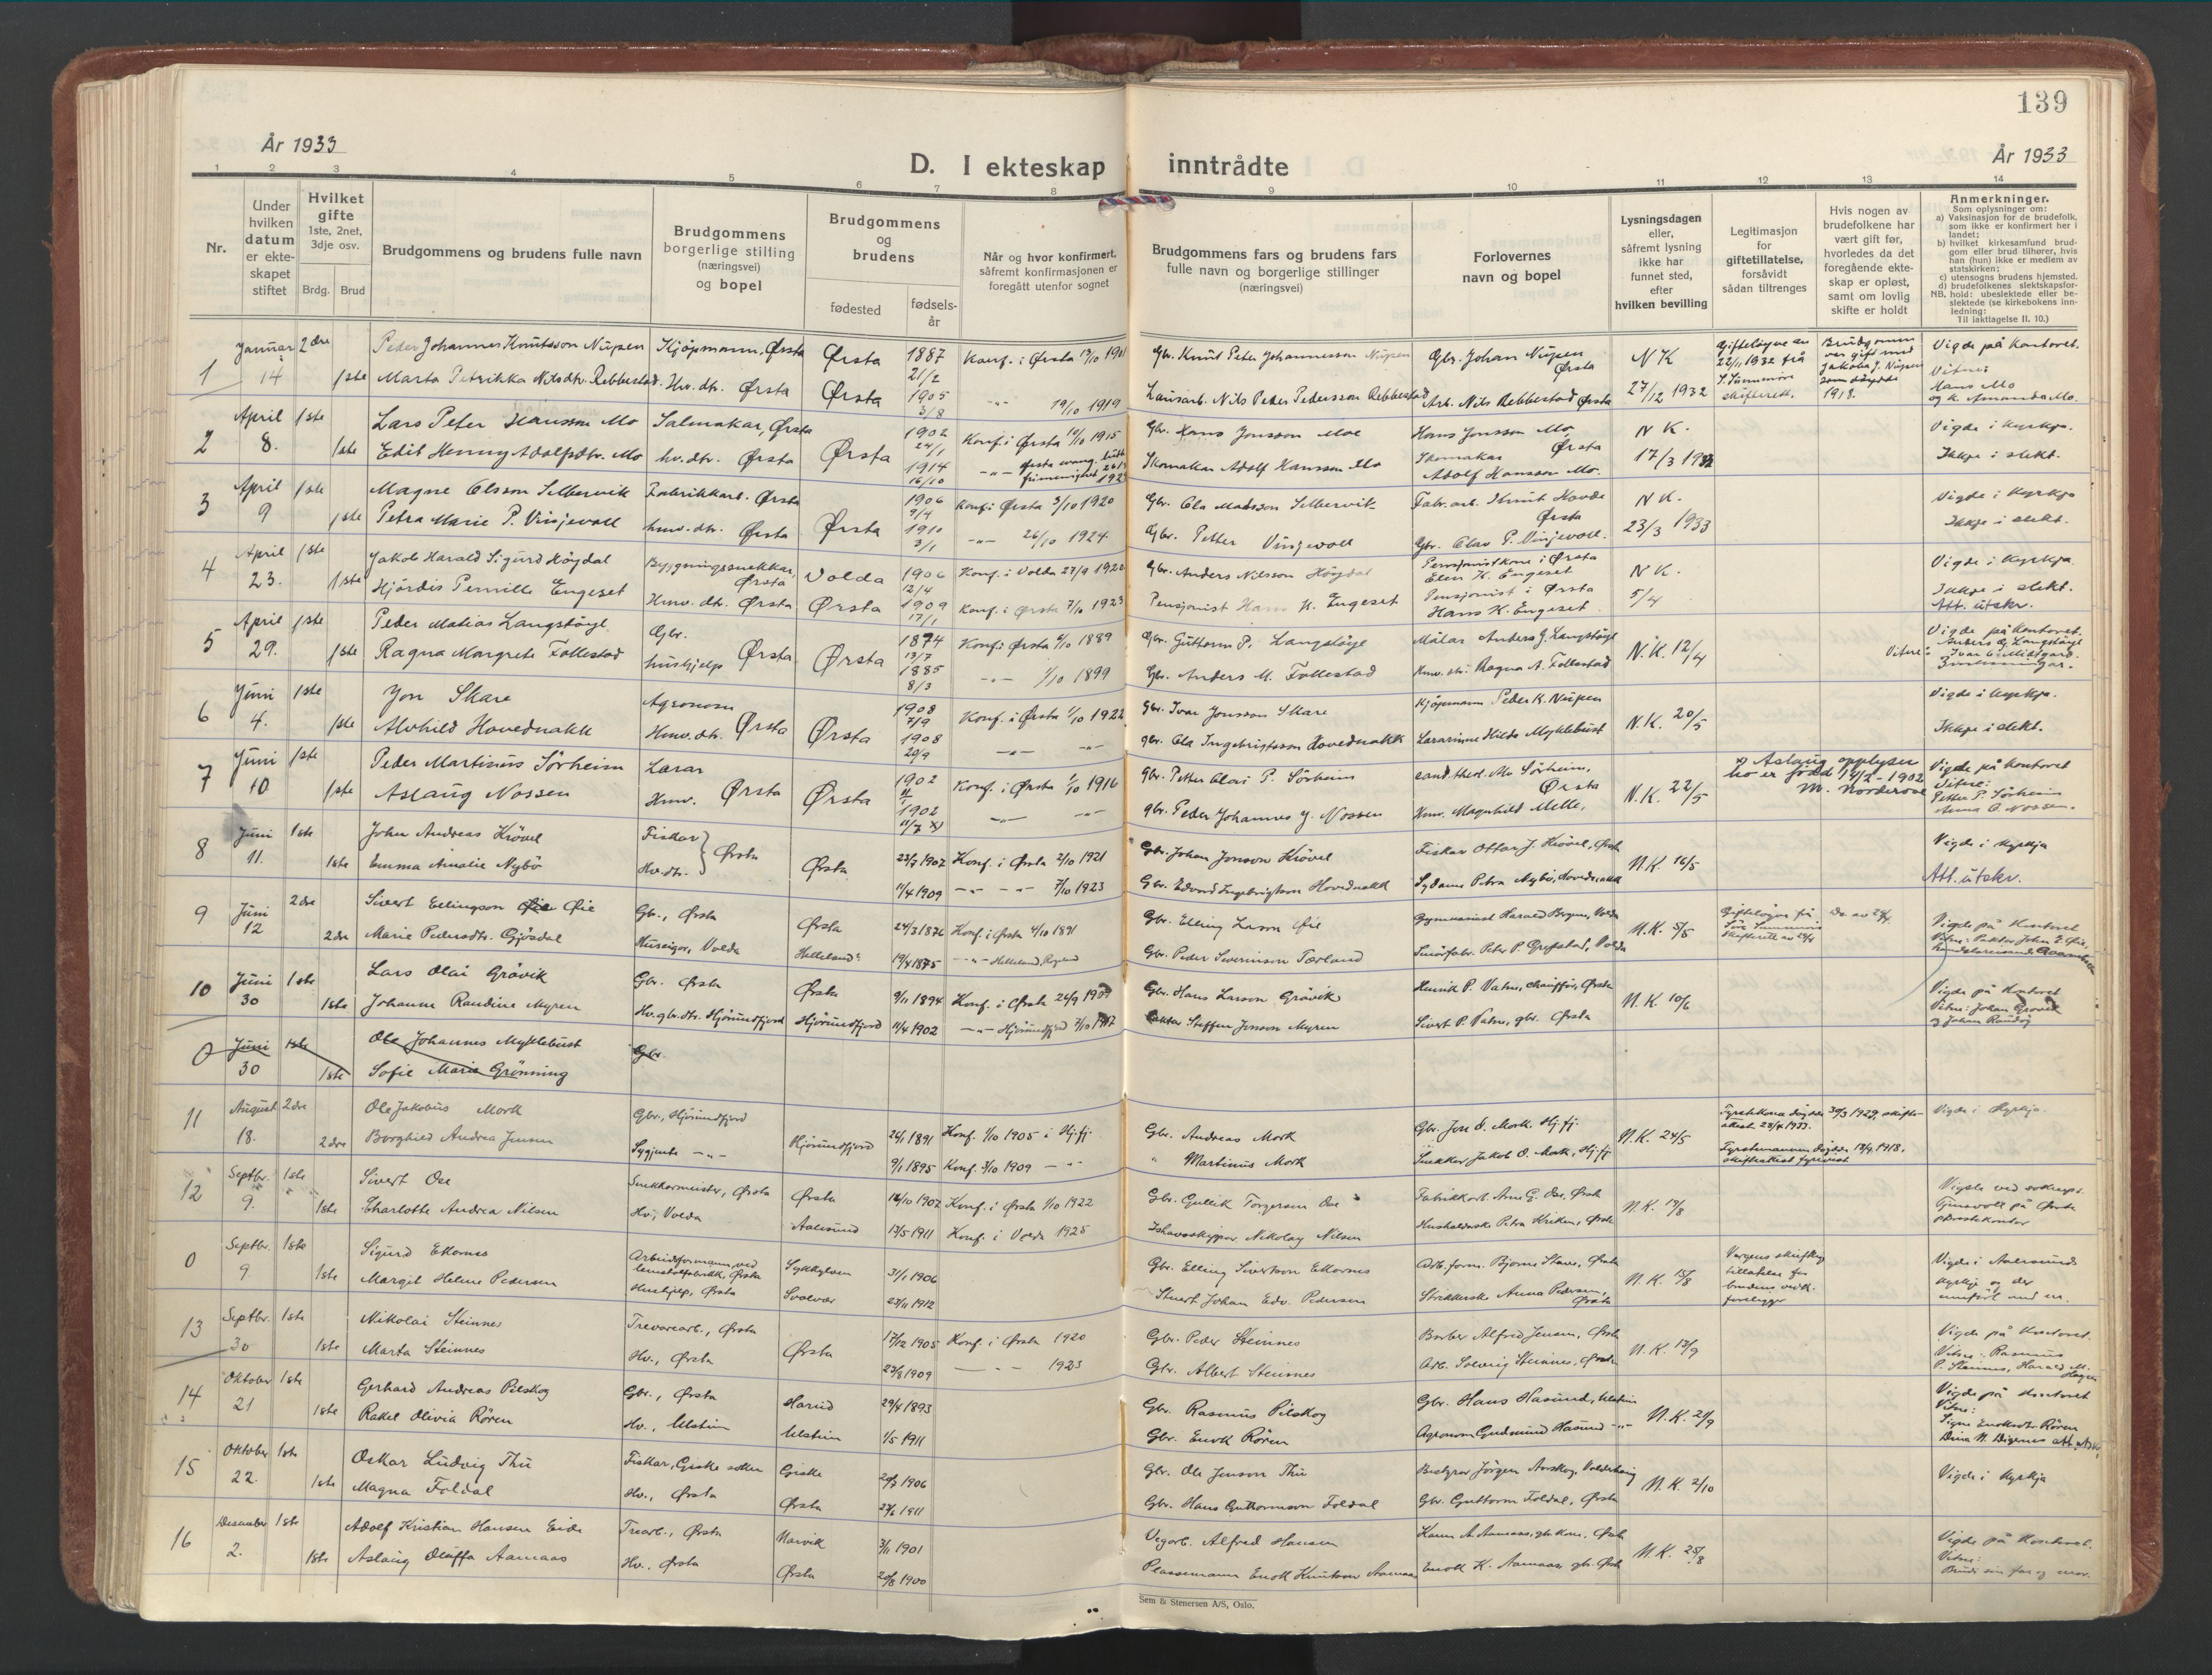 139
År 1933
D. I ekteskap inntrådte
År 1933
1 2 3 4 5 6 7 8 9 10 11 12 13 14
Nr.
Under hvilken datum er ekteskapet stiftet
Hvilket gifte
1ste, 2net, 3dje osv.
Brdg. Brud
Brudgommens og brudens fulle navn
Brudgommens borgerlige stilling (næringsvei) og bopel
Brudgommens og brudens
fødested
fødselsår
Når og hvor konfirmert, såfremt konfirmasjonen er foregått utenfor sognet
Brudgommens fars og brudens fars fulle navn og borgerlige stillinger (næringsvei)
Forlovernes navn og bopel
Lysningsdagen eller, såfremt lysning ikke har funnet sted, efter hvilken bevilling
Legitimasjon for giftetillatelse, forsåvidt sådan tiltrenges
Hvis nogen av brudefolkene har vært gift før, hvorledes da det foregående ekteskap er opløst, samt om lovlig skifte er holdt
Anmerkninger.
Som oplysninger om:
a) Vaksinasjon for de brudefolk, som ikke er konfirmert her i landet;
b) hvilket kirkesamfund brudgom eller brud tilhører, hvis han (hun) ikke er medlem av statskirken;
c) utensogns brudens hjemsted.
d) brudefolkenes slektskapsforhold: ubeslektede eller beslektede (se kirkebokens innledning:
NB. Til iakttagelse II. 10.)
1 Januar 14 2dre Peder Johannes Knutsson Nupen Kjøpmann, Ørsta Ørsta 1887 21/2 Konf. i Ørsta Gbr. Knut Peter Johannesson Nupen Gbr. Johan Nupen Ørsta N K 27/12 1932 Gifteløyve av 22/11 1932 frå S. Sunnmøre skifterett. Brudgomen var gift med Jakoba J. Nupen som døydde 1918. Vigde på kontoret.
1ste Marta Petrikka Nilsdtr. Rebbestad. Hv. dtr. Ørsta Ørsta 1905 3/8 19/10 1919 Nils Peder Pedersson Rebbestad Arb. Nils Rebbestad Ørsta Vitne: Hans Mo og K. Amanda Mo.
2 April 8. 1ste Lars Peter Hansson Mo Salmakar, Ørsta Ørsta 1902 24/1 Konf. i Ørsta 10/10 1915 Gbr. Hans Jonsson Moe Hans Jonsson Mo, Ørsta N K. 17/3 Vigde i kyrkja.
1ste Edit Henny Adolfsdtr. Mo hv. dtr. Ørsta 1914 16/10 Skomakar Adolf Hansson Mo Skomakar Adolf Hansson Mo. Ikkje i slekt.
3 April 9 1ste Magne Olsson Selbervik Fabrikkarb. Ørsta Ørsta 1906 9/4 Konf. i Ørsta 3/10 1920 Gbr. Ola Madsson Selbervik Fabr. arb. Knut Hovde Ørsta N K. 23/3 1933 Vigde i kyrkja
1ste Petra Marie P. Vinjevoll hmv. dtr. Ørsta 1910 3/1 26/10 1924. Gbr. Petter Vinjevoll Gbr. Olav P. Vinjevoll. Ikkje i slekt.
4 April 23. 1ste Jakob Harald Sigurd Høydal Bygningssnekkar, Ørsta Volda 1906 12/4 Konf. i Volda Gbr. Anders Nilsson Høydal Pensjonistkone i Ørsta Elen K. Engeset N K. 5/4 Vigde i kyrkja.
1ste Hjørdis Pernille Engeset Hmv. dtr. Ørsta Ørsta 1909 17/1 Konf. i Ørsta 7/10 1923 Pensjonist Hans K. Engeset Pensjonist i Ørsta Hans K. Engeset Ikkje i slekt. Att. utskr.
5 April 29. 1ste Peder Matias Langstøyl Gbr. Ørsta Ørsta 1874 13/7 Konf. i Ørsta 6/10 1889 Gbr. Guttorm P. Langstøyl Målar Anders G. Langstøyl N. K. 12/4 Vigde på kontoret.
1ste Ragna Margrete Follestad hushjelp 1885 8/3 1/10 1899 Gbr. Anders M. Follestad Ragna A. Follestad Vitne: Anders G. Langstøyl
6 Juni 4. 1ste Jon Skare Agronom Ørsta Ørsta 1908 7/9 Konf. i Ørsta 1/10 1922 Gbr. Ivar Jonsson Skare Kjøpmann Peder K. Nupen N. K. 20/5 Vigde i kyrkja.
1ste Alvhild Hovednakk Hmv. dtr. 1908 20/9 Gbr. Ola Ingebrigtsson Hovednakk Lærarinne Hilda Myklebust Ikkje i slekt.
7 Juni 10 1ste Peder Martinus Sørheim Lærar Ørsta Ørsta 1902 Konf. i Ørsta 1/10 1916 Gbr. Petter Olai P. Sørheim cand. theol. Mo Sørheim, Ørsta N. K. 22/5 x) Aslaug opplyser ho er født 1902 M. Norderval Vigde på kontoret
1ste Aslaug Nossen Hmv. 1902 11/7 x) Gbr. Peder Johannes J. Nossen Hmv. Magnhild Melle, Vitne: Petter P. Sørheim Anna O. Nossen.
8 Juni 11. 1ste John Andreas Krøvel Fiskar Ørsta Ørsta 1902 Konf. i Ørsta 2/10 1921 Gbr. Johan Jonson Krøvel Fiskar Ottar J. Krøvel, Ørsta N. K. 16/5 Vigde i kyrkja
1ste Emma Amalie Nybø Hv. dtr. 11/4 1909 7/10 1923 Gbr. Edvard Ingebrigtson Hovednakk Sydame Petra Nybø, Hovednakk Att. utskr.
9 Juni 12 2dre Sivert Ellingson Øie Gbr., Ørsta Ørsta 24/3 1876 Konf. i Ørsta 4/10 1891 Gbr. Elling Larson Øie Gymnasiast Harald Bergum, Volda N. K. 5/5 Vigde på kontoret
2dre Marie Pedersdtr. Gjøsdal Huseigar, Volda Helleland 19/4 1875 Helleland, Rogaland Gbr. Peder Severinson Tærland Smørfabr. Peter P. Grepstad, Volda
10 Juni 30 1ste Lars Olai Grøvik Gbr. Ørsta Ørsta 9/11 1894 Konf. i Ørsta Gbr. Hans Larson Grøvik Henrik P. Vatne, chauffør, Ørsta N. K. 10/6 Vigde på kontoret
1ste Johanne Randine Myren Hv. gbr. dtr. Hjørundfjord Hjørundfjord 11/4 1902 Hjørundfjord Steffen Jonson Myren Sivert P. Vatne, gbr. Ørsta Vitne: Johan Grøvik og Johan Raudøy
0 Juni 30 1ste Ole Johannes Myklebust Gbr.
1ste Sofie Marie Grønning
11 August 18. 2dre Ole Jakobus Mork Gbr., Hjørundfjord Hjørundfjord 26/1 1891 Konf. 1/10 1905 i Hj.fj. Gbr. Andreas Mork Gbr. Jon O. Mork. Hj.fj. N. K. 24/5 Fyrstekona døydde 30/3 1929, skifteattest 28/4 1933. Vigde i kyrkja.
2dre Borghild Andrea Jensen Sygjente 9/1 1895 Konf. 3/10 1909 " Martinus Mork Snekker Jakob O. Mork, Hj.fj. Fyrstemannen døydde 1918, skifteattest fyrevist
12 Septbr. 9. 1ste Sivert Ose Snekkarmeister, Ørsta Ørsta 16/10 1902 Konf. i Ørsta 1/10 1922 Gbr. Gullik Torgersen Ose Fabrikkarb. Arne G. Ose, Ørsta N. K. 19/8
1ste Charlotte Andrea Nilsen Hv., Volda Aalesund 13/5 1911 Konf. i Volda 1925 Ishavsskipper Nikolay Nilsen Petra Kriken, Ørsta
0 Septbr. 9 1ste Sigurd Ekornes Arbeidsformann ved Ørsta Sykkylven 31/1 1906 Gbr. Elling Sivertson Ekornes Arb. form. Bjarne Skare, Ørsta N. K. 15/8 Verges skriftleg tillatelse for brudens vedk. foreligger Vigde i Aalesunds kyrkje og der innført med nr.
1ste Margit Helene Pedersen Hushjelp, Ørsta Svolvær 23/11 1912 Stuert Johan Edv. Pedersen Strikkerske Anna Pedersen, Ørsta
13 Septbr. 30 1ste Nikolai Steinnes Trevarearb., Ørsta Ørsta 17/12 1905 Konf. i Ørsta 1920 Gbr. Peder Steinnes Barber Alfred Jensen, Ørsta N. K. 13/9 Vigde på kontoret.
1ste Marta Steinnes Hv., Ørsta 23/8 1909 1923 Gbr. Albert Steinnes Arb. Solveig Steinnes, Ørsta Vitne: Rasmus P. Steinnes, Harald M. Hagen
14 Oktober 21 1ste Gerhard Andreas Pilskog Gbr., Ørsta Hareid 29/4 1893 Gbr. Rasmus Pilskog Gbr. Hans Hasund, Ulstein N. K. 21/9 Vigde på kontoret
1ste Rakel Olivia Røren Hv., Ulstein Ulstein 1/5 1911 Gbr. Enok Røren Agronom Gudmund Hasund Vitne: Signe Enoksdtr. Røren
15 Oktober 22. 1ste Oskar Ludvig Thu Fiskar, Giske Giske 1906 Gbr. Ole Jenson Thu Bestyrer Jørgen Aarskog, N. K. 2/10 Vigde i kyrkja
1ste Magna Foldal Hv., Ørsta Ørsta 1911 Gbr. Hans Guttormson Foldal Gbr. Guttorm Foldal, Ørsta
16 Desember 2. 1ste Adolf Kristian Hansen Eide Trearb., Ørsta Narvik 3/11 1901 Vegarb. Alfred Hansen Karen A. Aamaas, gbr. kone, Ørsta N. K. 25/8 Vigde på kontoret.
1ste Aslaug Oluffa Aamaas Hv., Ørsta Ørsta 20/8 1900 Plassemann Enok Knutson Aamaas Enok K. Aamaas, gbr. Ørsta Vitne: Brudi sin far og mor.
Sem & Stenersen A/S, Oslo.